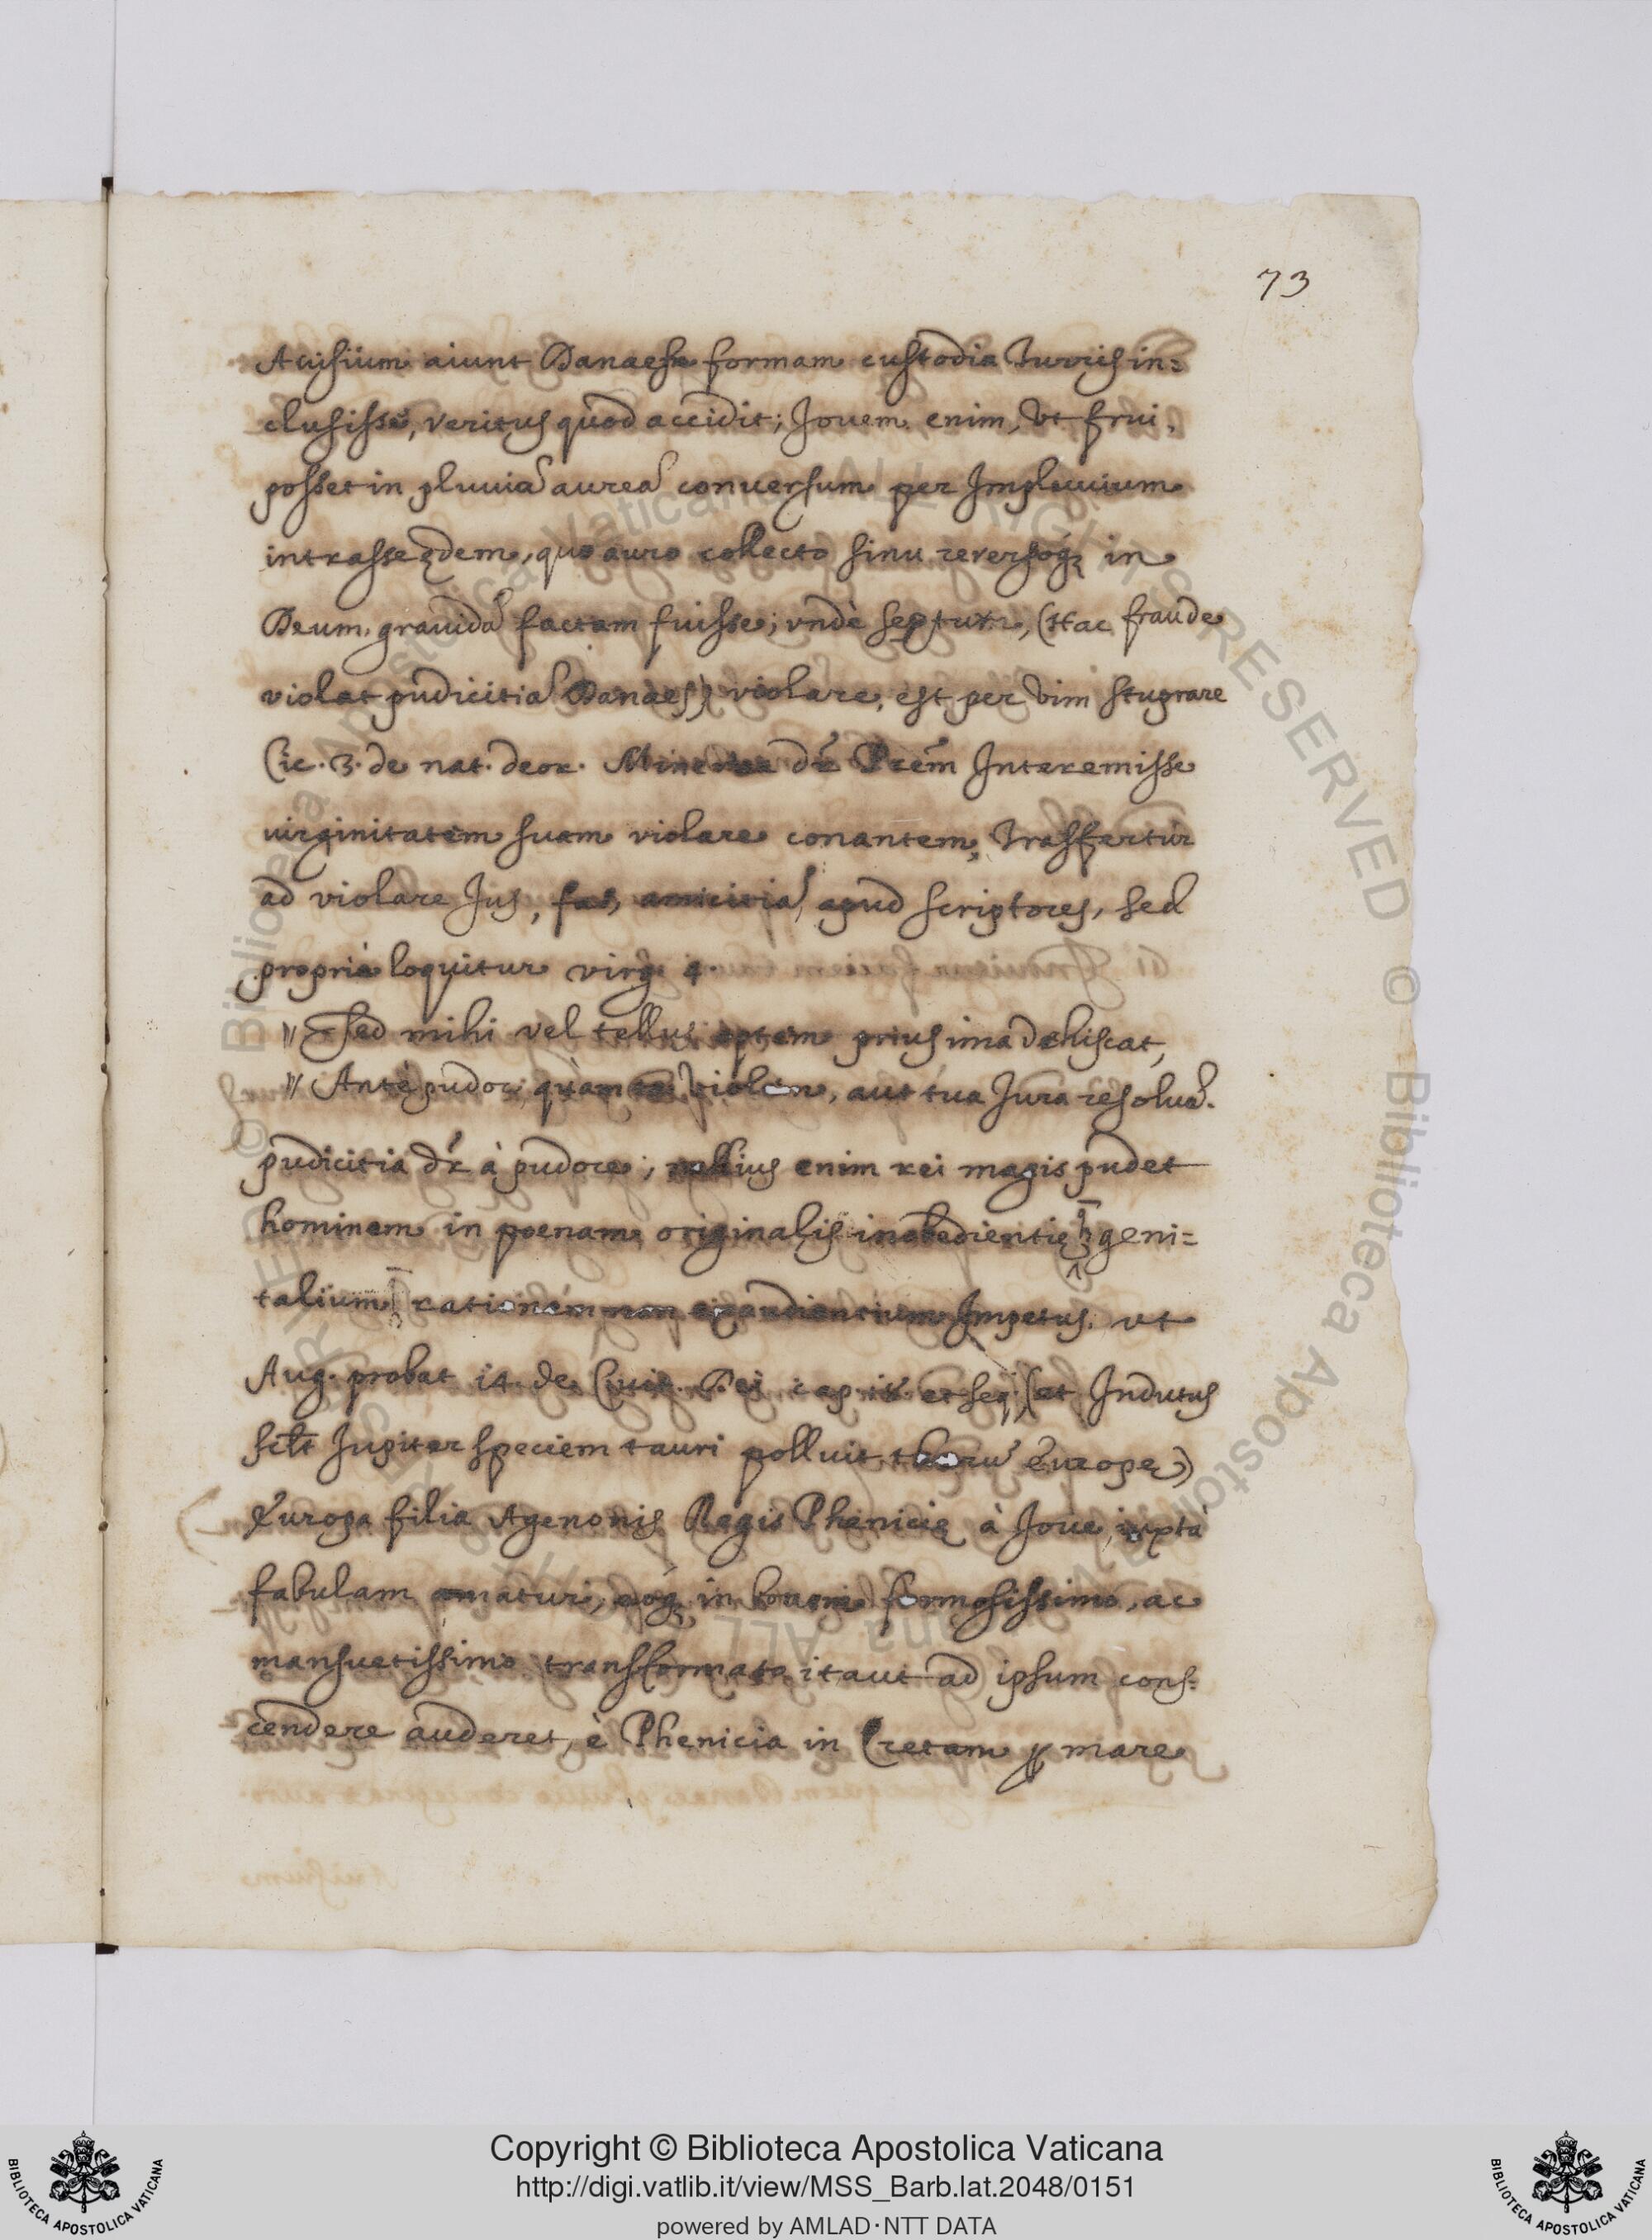 73
Acrisium aiunt Danaesm formam custodia Turris in=
clusisse, veritus quod accidit; Jouem enim, vt frui,
posset in pluuiã aureã conuersum per Impluuium
intrasse ędem, quo auro collecto sinu reversoq́ꝫ in
Deum, grauidã factam fuisse; vndè septur, (Hac fraude
violat pudicitiã Danaes) violare, est per vim stuprare
Cic. 3. de nat. deor. Minerva dr̃ Prẽm Interemisse
uirginitatem suam violare conantem, Trasfertur
ad violare Jus, fas, amicitiã, apud scriptores, sed
propriè loquitur virg. 4.
" Sed mihi vel tellus optem prius ima dehiscat,
" Ante pudor, quàm te violem, aut tua Jura resoluã.
pudicitia dr̃ à pudore; nullius enim rei magis pudet
hominem in poenam originalis inobedientię geni=
talium rationem non exaudientium Impetus, vt
Aug. probat 14. de Ciuit. Dei cap. et seq. (et Indutus
scilt Jupiter speciem tauri polluit thorũ Europę)
Europa filia Agenonis Regis Phenicię à Joue, iuxta
fabulam amatur, eoq́ꝫ in bouem formosissimo, ac
mansuetissimo transformato, itaut ad ipsum cons=
cendere auderet, è Phenicia in Cretam ꝑ mare
Copyright © Biblioteca Apostolica Vaticana
http://digi.vatlib.it/view/MSS_Barb.lat.2048/0151
powered by AMLAD·NTT DATA
BIBLIOTECA APOSTOLICA VATICANA
BIBLIOTECA APOSTOLICA VATICANA